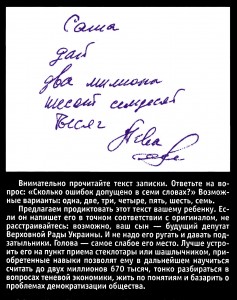 Саша
дай
два милионы
шесот семдесят
тысяч
Внимательно прочитайте текст записки. Ответьте на во-
прос: «Сколько ошибок допущено в семи словах?» Возмож-
ные варианты: одна, две, три, четыре, пять, шесть, семь.
Предлагаем продиктовать этот текст вашему ребенку. Ес-
ли он напишет его в точном соответствии с оригиналом, не
расстраивайтесь: возможно, ваш сын — будущий депутат
Верховной Рады Украины. И не надо его ругать и давать под-
затыльники. Голова — самое слабое его место. Лучше устро-
ить его на пункт приема стеклотары или шашлычником, при-
обретенные навыки позволят ему в дальнейшем научиться
считать до двух миллионов 670 тысяч, тонко разбираться в
вопросах теневой экономики, жить по понятиям и базарить о
проблемах демократизации общества.